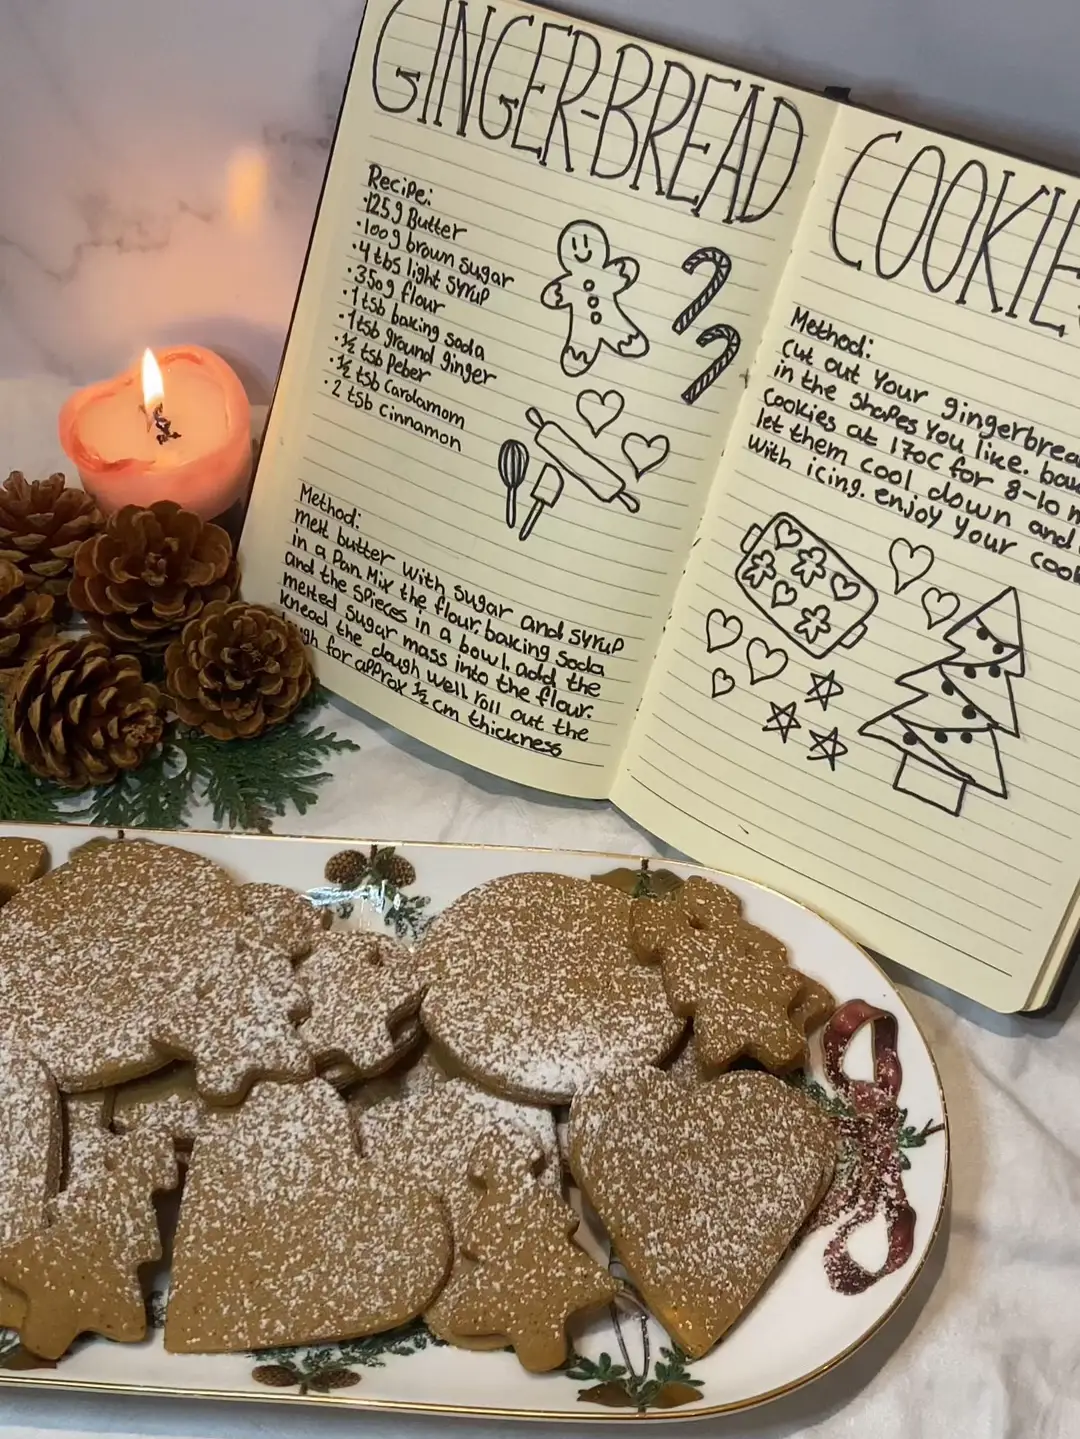 GINGER-BREAD
Recipe:
·125g Butter
·100g brown sugar
·4 tbs light syrup
·350g flour
·1 tsb baking soda
·1 tsb ground ginger
·½ tsb Peber
·½ tsb Cardamom
·2 tsb cinnamon
Method:
melt butter with sugar and syrup
in a Pan. Mix the flour, baking soda
and the spieces in a bowl. add the
melted sugar mass into the flour.
knead the dough well. roll out the
for approx ½ cm thickness
COOKIE
Method:
cut out your gingerbrea
in the shapes you like.
cookies at 170c for 8-10
let them cool down and
with icing. enjoy your